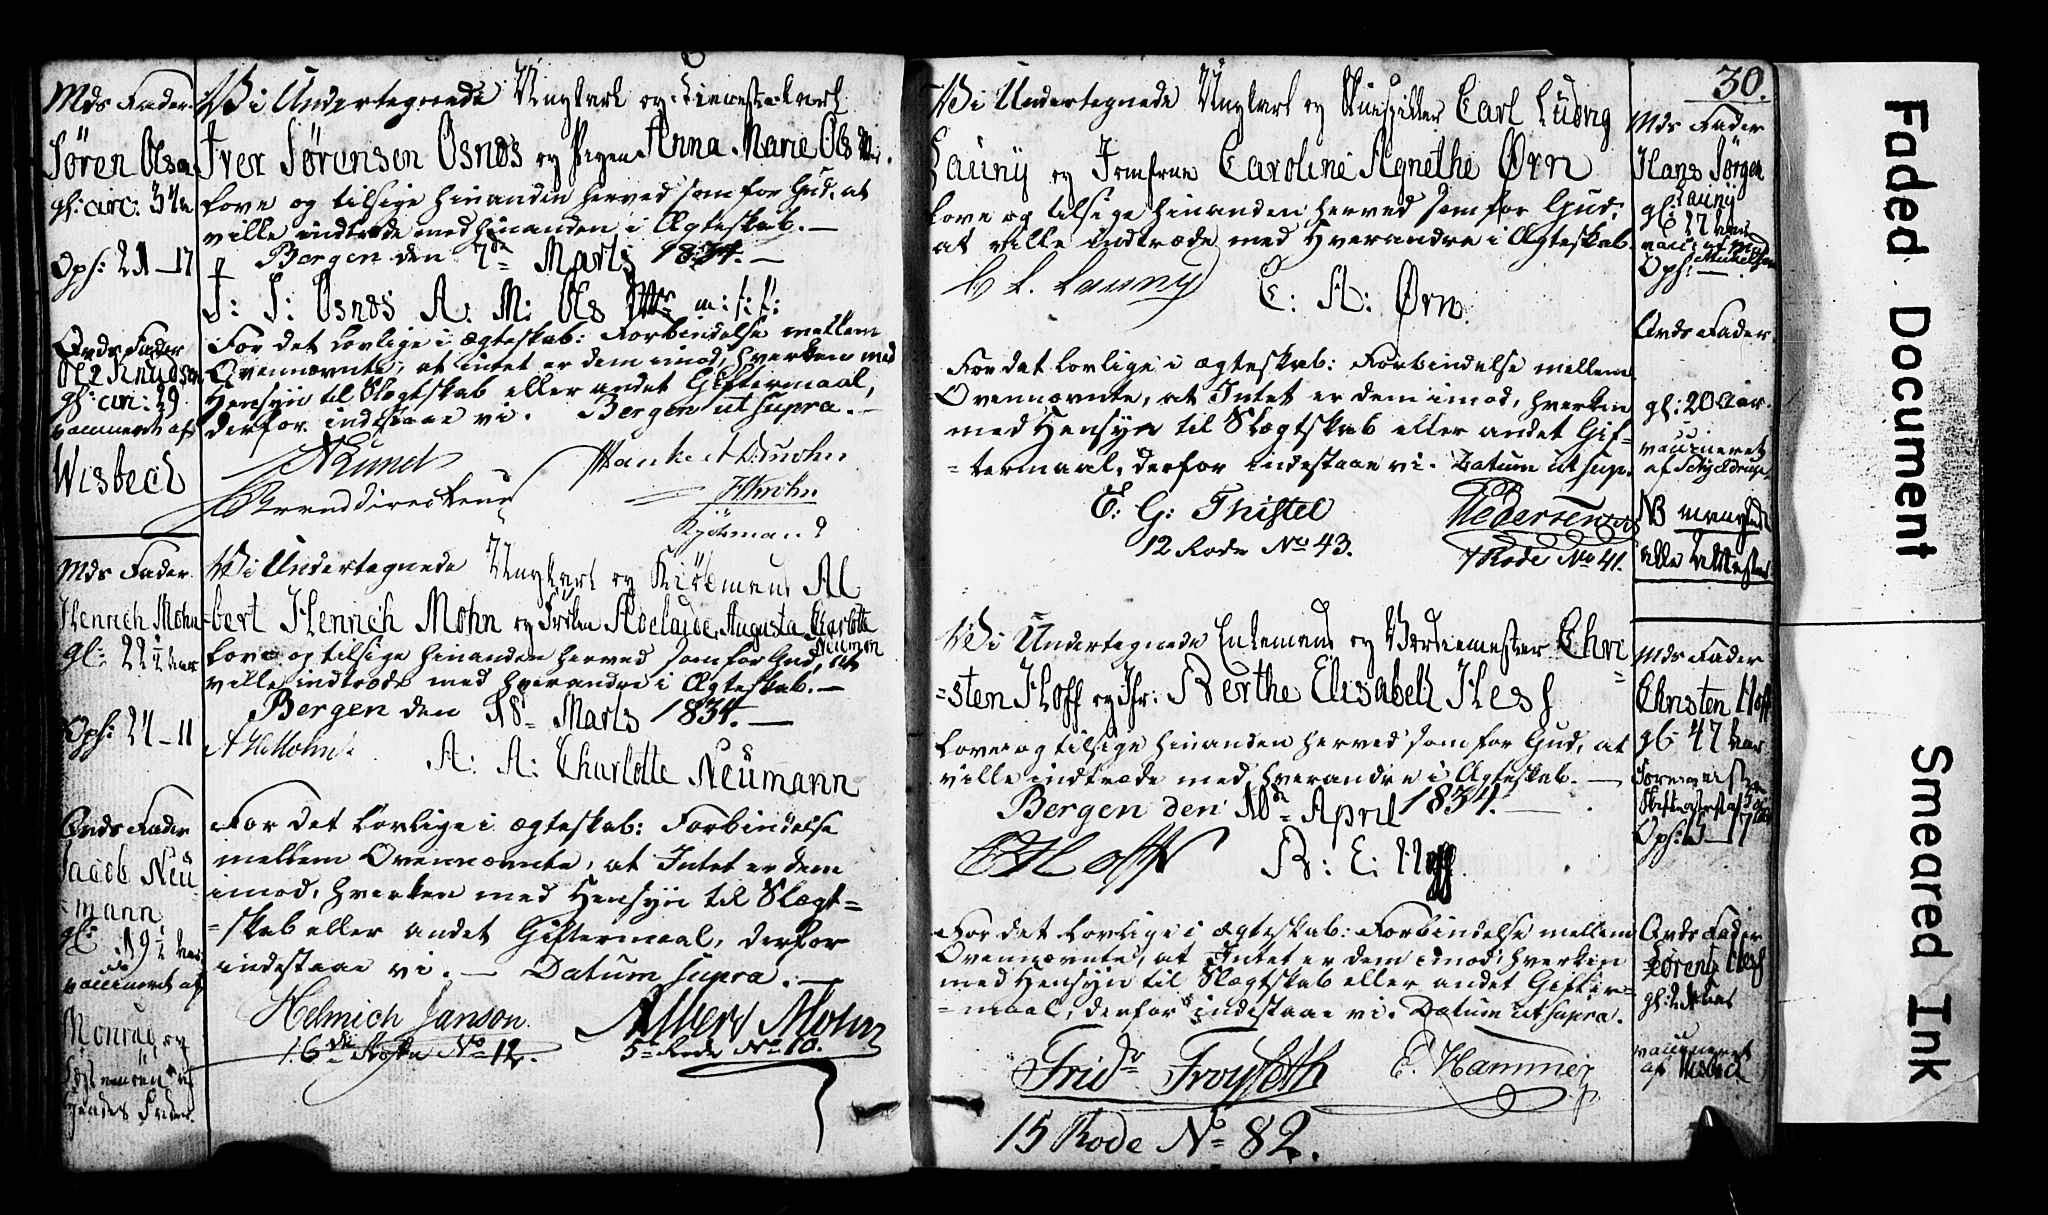 Mds Fader
Søren Olsen
gl: circ: 34
Ops: 21–17
Brds Fader
Ole Knudsen
gl: circ: 29
vaccineret af
Wisbech
Vi Undertegnede Ungkarl og
Iver Sørensen Osnæs og Pigen Anna Marie Ols Dtr.
love og tilsige hinanden herved som for Gud, at
ville indtræde med hinanden i Ægteskab.—
Bergen den 7de Marts 1834.—
I: S: Osnæs A: M: Ols Dtr m: f: P:
For det lovlige i ægteskab: Forbindelse mellem
Ovennævnte, at intet er dem imod, hverken med
Hensyn til Slægtskab eller andet Giftermaal,
derfor indestaae vi. Bergen ut supra.—
Branddirecteur
Mds Fader
Henrich Mohn
gl: 22½ Aar
Ops: 24–11
Brds Fader
Jacob Neu-
=mann
gl: 19½ Aar
vaccineret af
Monrad og
Vi Undertegnede Ungkarl og Kiøbmand Al
=bert Henrich Mohn og Frøken Adelaide Augusta Charlotte
Neuman
love og tilsige hinanden herved som for Gud, at
ville indtræde med hverandre i Ægteskab.—
Bergen den 18de Marts 1834.—
A H Mohn
A: A: Charlotte Neumann
For det lovlige i ægteskab: Forbindelse
mellem Ovennævnte, at Intet er dem
imod, hverken med Hensyn til Slægt=
=skab eller andet Giftermaal, derfor
indestaae vi.— Datum supra.—
Helmich Janson
16de Rode No 12.
Albert Mohn
5te Rode No 10.
30.
Vi Undertegnede Ungkarl og Skuespiller Carl Ludvig
Launy og Jomfrue Caroline Agnethe Ørn
love og tilsige hinanden herved som for Gud,
at ville indtræde med hverandre i Ægteskab.
C L. Launy
C: A: Ørn.
For det lovlige i ægteskab: Forbindelse mellem
Ovennævnte, at Intet er dem imod, hverken
med Hensyn til Slægtskab eller andet Gif=
=termaal, derfor indestaae vi. Datum ut sup.
E: G: Thistel
12 Rode No 43.
Pedersen
7 Rode No 41.
Mds Fader
Hans Jørgen
Launy
gl: 27 Aar
Ops: —
Brds Fader
gl: 20 Aar.
vaccineret
af
NB mangler
alle Attester
Vi Undertegnede Enkemand og Chri
=sten Hoff og Jfr: Berthe Elisabeth Hess
love og tilsige hinanden herved som for Gud, at
ville indtræde med hverandre i Ægteskab.—
Bergen den 10de April 1834.—
C Hoff
B: E: Hess
For det lovlige i ægteskab: Forbindelse mellem
Ovennævnte, at Intet er dem imod, hverken
med Hensyn til Slægtskab eller andet Gifter=
=maal, derfor indestaae vi. Datum ut supra.
Fridr
E. Hammer
15 Rode No 82.
Mds Fader
Christen Hoff
gl: 47 Aar
Brds Fader
Lorentz Hess
vaccineret
af Wisbech
Faded Document
Smeared Ink